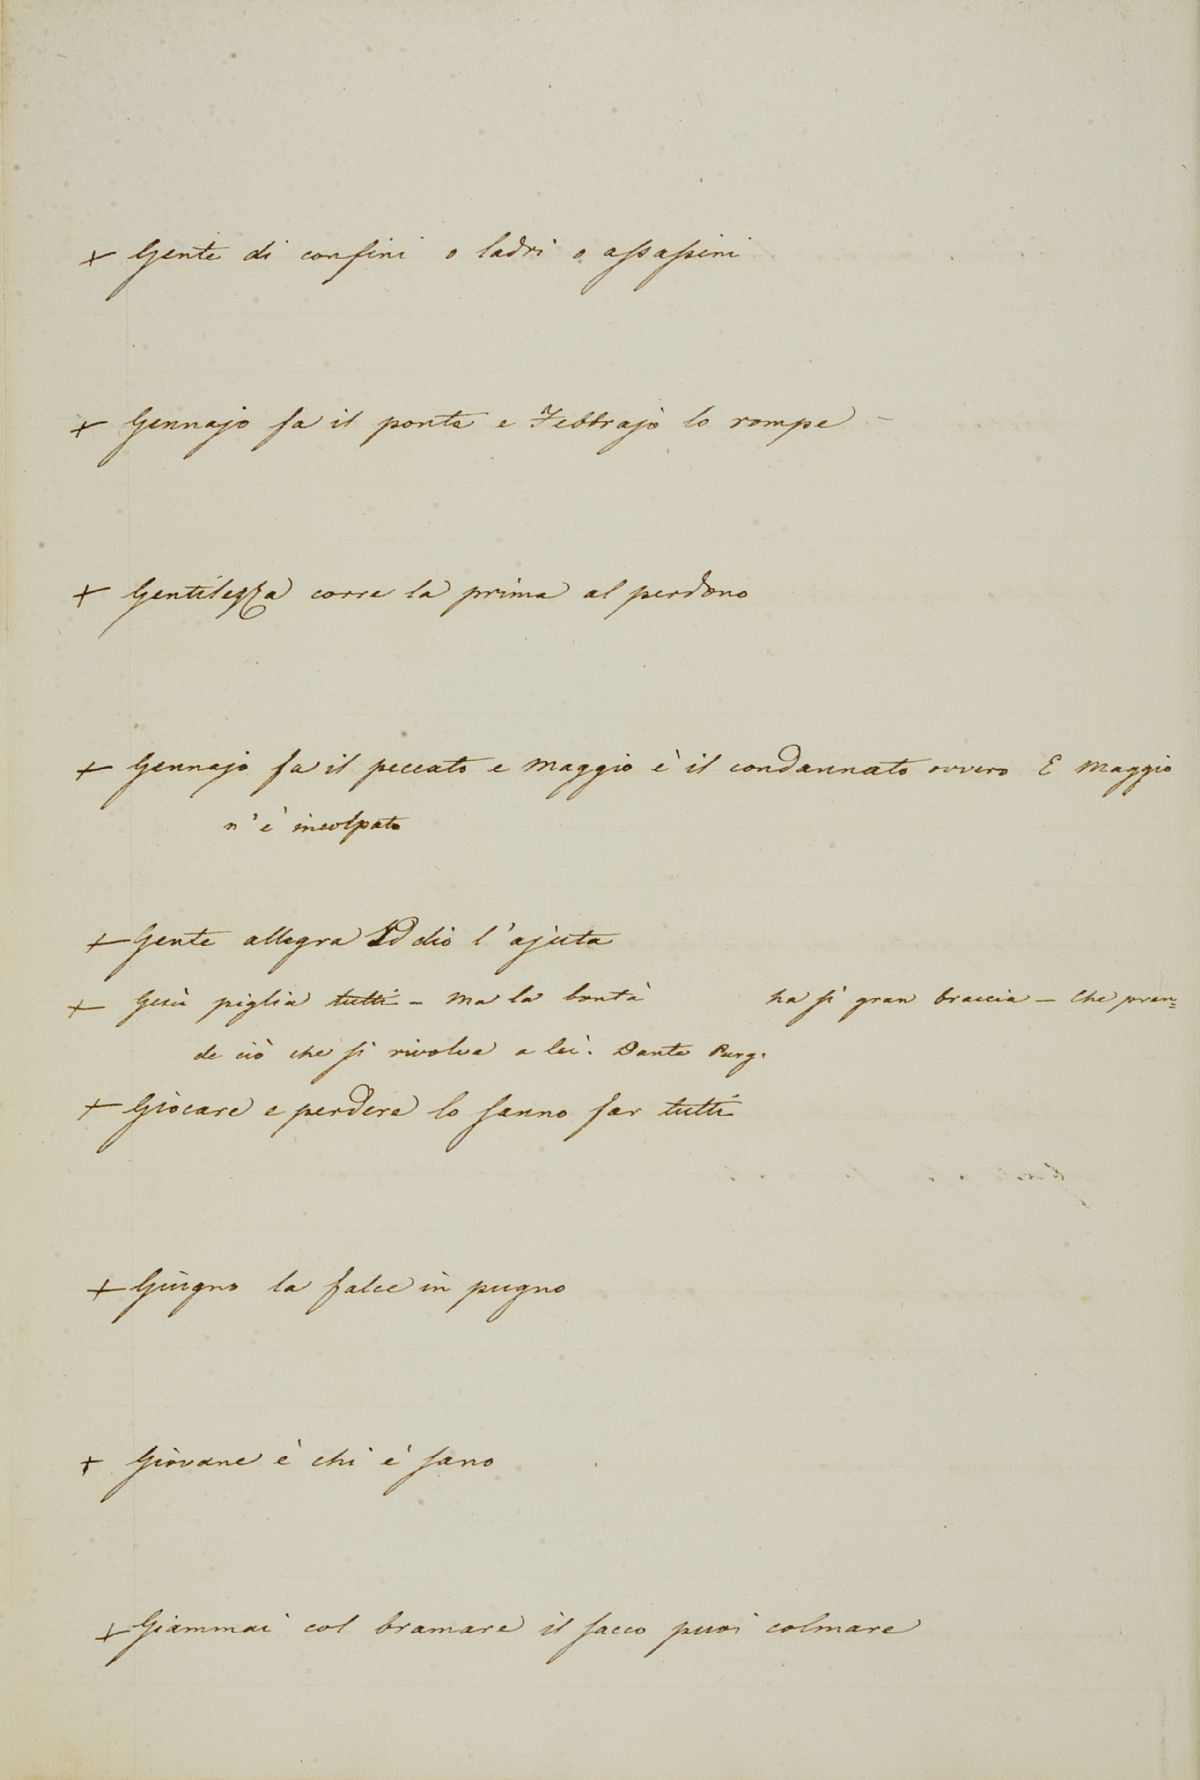 + Gente di confini o ladri o assassini
+ Gennajo fa il ponte e Febbrajo lo rompe –
+ Gentilezza corre la prima al perdono
+ Gennajo fa il peccato e maggio è il condannato ovvero E maggio
n'è incolpato
+ Gente allegra Iddio l'ajuta
+ Gesù piglia tutti – ma la bontà ha sì gran braccia – Che pren=
de ciò che si rivolve a lei. Dante Purg.
+ Giocare e perdere lo sanno far tutti
+ Giugno la falce in pugno
+ Giovane è chi è sano
+ Giammai col bramare il sacco puoi colmare